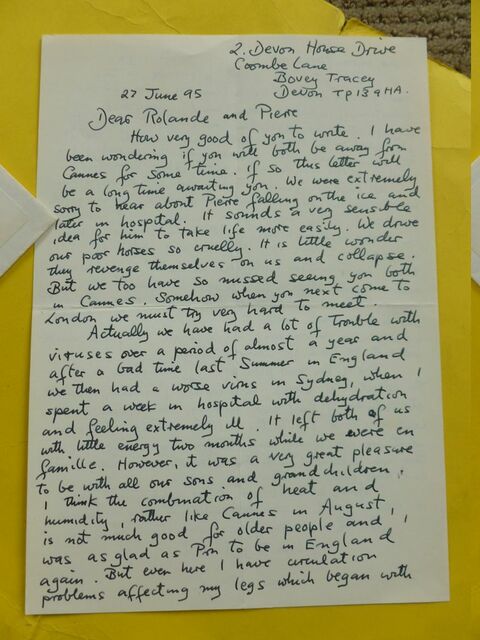 2. Devon House Drive
Coombe Lane
Bovey Tracey
Devon TP13 9HA.
27 June 95
Dear Rolande and Pierre
How very good of you to write. I have
been wondering if you will both be away from
Cannes for some time. if so this letter will
be a long time awaiting you. We were extremely
sorry to hear about Pierre falling on the ice and
later in hospital. It sounds a very sensible
idea for him to take life more easily. We drive
our poor horses so cruelly. It is little wonder
they revenge themselves on us and collapse.
But we too have so missed seeing you both
in Cannes. Somehow when you next come to
London we must try very hard to meet.
Actually we have had a lot of trouble with
viruses over a period of almost a year and
after a bad time last Summer in England
we then had a worse virus in Sydney, when I
spent a week in hospital with dehydration
and feeling extremely ill. It left both of us
with little energy two months while we were en
famille. However, it was a very great pleasure
to be with all our sons and grandchildren.
I think the combination of heat and
humidity, rather like Cannes in August,
is not much good for older people and I
was as glad as Pin to be in England
again. But even here I have circulation
problems affecting my legs which began with